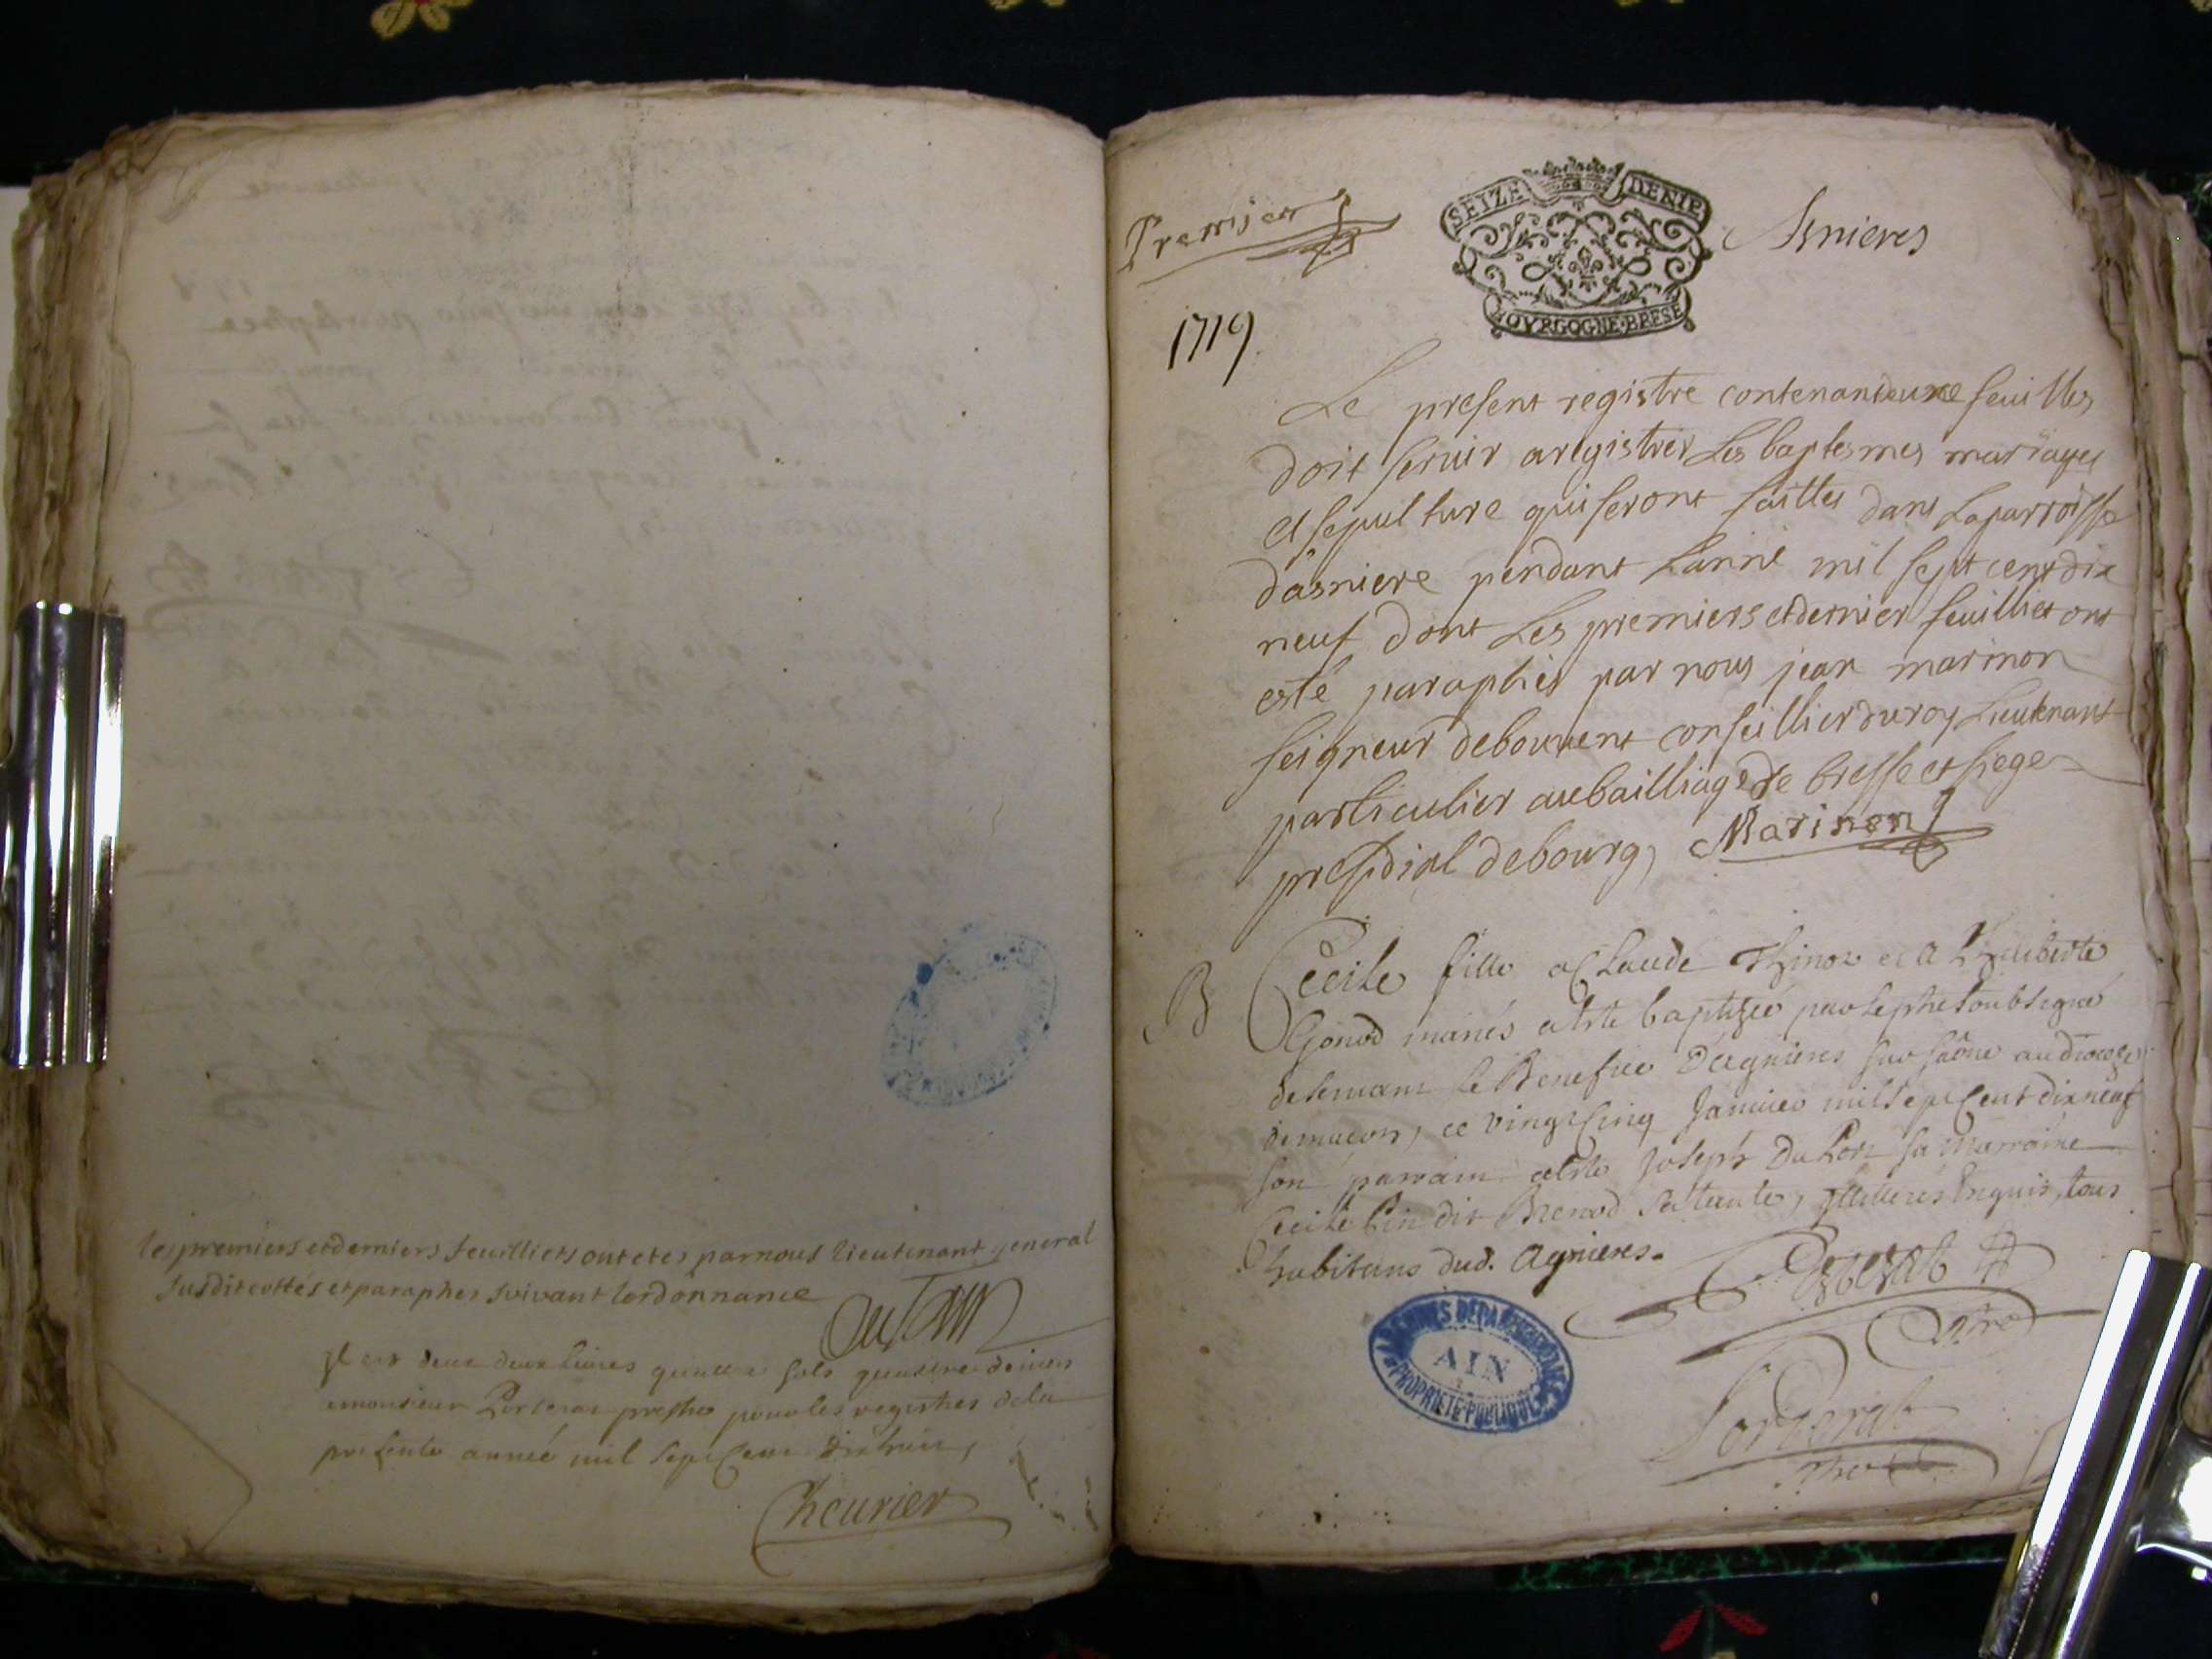 les premiers et derniers feuilliets ont etes par nous lieutenant general
susdit cottés et paraphes suivant lordonnance
il est deux deux livres quatre sols quattre deniers
a monsieur presbtre pour les registres de la
presente année mil sept cent dix huit,
Cheurier
Premier
SEIZE DENIE
BOVRGOGNE·BRESE
Asnieres
1719.
Le present registre contenant feuilles
doit servir a registrer Les baptesmes mariages
et sepulture qui seront faittes dans La parroisse
dasniere pendant Lanné mil sept cent dix
neuf dont Les premiers et dernier feuilliet ont
esté paraphés par nous jean marinon
seigneur de bouvent conseillier du roy Lieutenant
particulier au bailliage de bresse et siege
presidial de bourg, Marinon
B
Cecile fille a Claude Thinoz et a Philiberte
Gonod mariés a este baptizée par le pbre soubsigné
desservant le Benefice D'agnieres sur saône au diocoeze
de macon, ce vingt cinq Janvier mil sept cent dix neuf
son parrain a este Joseph Du Port sa marraine
Cecile dit Brenod sa tante, illiterés enquis, tous
habitans dud. Agnieres.
ARCHIVES DEPARTEMENTALES
AIN
PROPRIETE PUBLIQUE